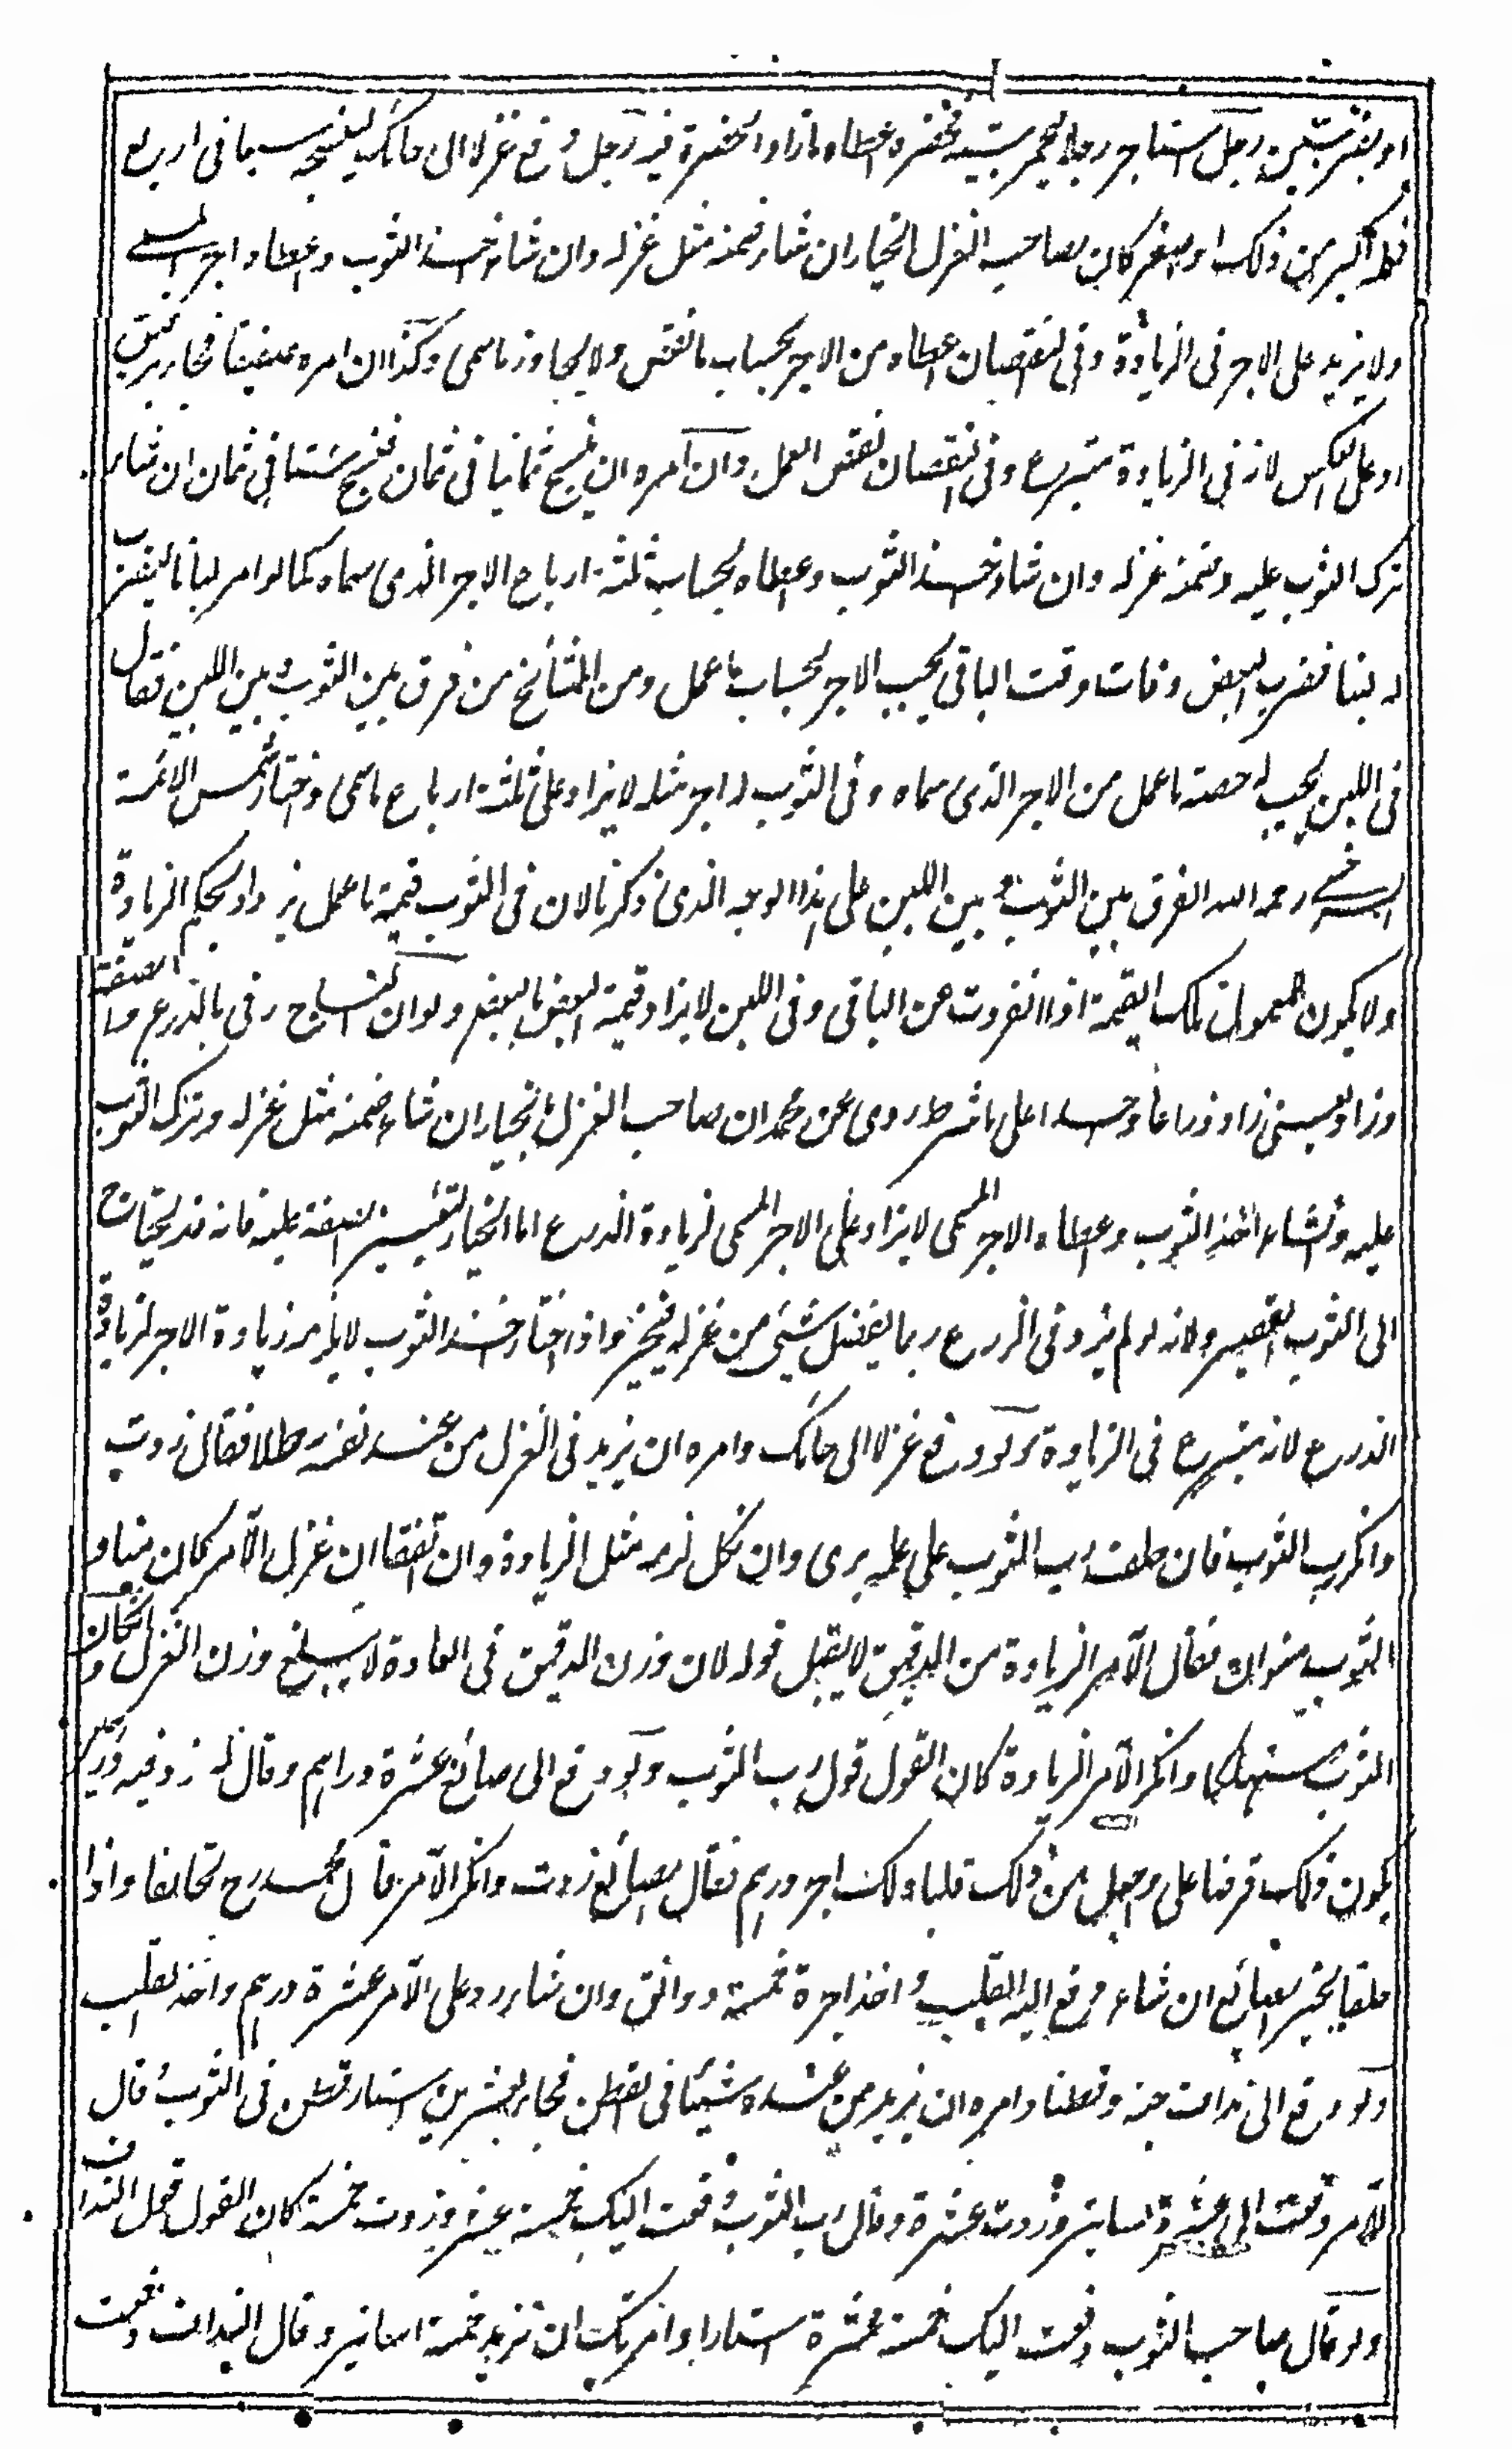 او بضربتين رجل استاجر رجلا ليحجم سنيه فحفره عطاه مازاد الحفرة فيه رجل دفع غزلا الى حائك لينسجه سبعا فى اربع
فعله اكبر من ذلك او اصغر كان لصاحب الغزل الخيار ان شاء ضمنه مثل غزله وان شاء اخذ الثوب واعطاه اجر المسمى
ولا يزيد على الاجر فى الزيادة وفى النقصان اعطاه من الاجر بحساب ما نقص ولا يجاوز ما سمى وكذا ان امره صفيقا فجاء برقيق
او على العكس لانه فى الزيادة متبرع وفى النقصان نقص العمل وان امره ان ينسج ثمانيا فى ثمان فنسج ستا فى ثمان ان شاء
ترك الثوب عليه وضمنه غزله وان شاء اخذ الثوب واعطاه بحساب ثلثة ارباع الاجر الذى سماه كما لو امر لبانا ليضرب
له لبنا فضرب البعض وفات وقت الباقى يجب الاجر بحساب ما عمل ومن المشائخ من فرق بين الثوب وبين اللبن فقال
فى اللبن يجب له حصة ما عمل من الاجر الذى سماه وفى الثوب له اجر مثله لا يزاد على ثلثة ارباع ما سمى واختار شمس الائمة
السرخسى رحمه الله الفرق بين الثوب وبين اللبن على هذا الوجه الذى ذكرنا لان فى الثوب قيمة ما عمل يزداد بحكم الزيادة
ولا يكون للمعمول تلك القيمة اذا انفردت عن الباقى وفى اللبن لا يزاد قيمة البعض بالبعض ولو ان النساج وفى بالذرع والصفة
وزاد يعنى زاد ذراعا واحدا على ما شرط روى عن محمد ان صاحب الغزل بالخيار ان شاء ضمنه مثل غزله وترك الثوب
عليه وان شاء اخذ الثوب واعطاه الاجر المسمى لا يزاد على الاجر المسمى لزيادة الذرع اما الخيار لتغيير الصفة عليه فانه قد يحتاج
الى الثوب القصير ولانه لو لم يزد فى الذرع ربما يفضل شئى من غزله فيخير واذا اختار اخذ الثوب لا يلزمه زيادة الاجر لزيادة
الذرع لانه متبرع فى الزيادة ولو دفع غزلا الى حائك وامره ان يزيد فى الغزل من عنده رطلا فقال زدت
وانكر رب الثوب فان حلف رب الثوب على علمه برى وان نكل لزمه مثل الزيادة وان اتفقا ان غزل الآمر كان منا و
الثوب منوان فقال الآمر الزيادة من الدقيق لا يقبل قوله لان وزن الدقيق فى العادة لا يبلغ وزن الغزل وان كان
الثوب مستهلكا وانكر الآمر الزيادة كان القول قول رب الثوب ولو دفع الى صائغ عشرة دراهم وقال له زد فيه درهمين
يكون ذلك قرضا على واجعل من ذلك قلبا ولك اجر درهم فقال الصائغ زدت وانكر الآمر قال محمد رح تحالفا واذا
حلفا يخير الصائغ ان شاء دفع اليه القلب واخذ اجرة خمسة دوانق وان شاء رد على الآمر عشرة دراهم واخذ القلب
ولو دفع الى نداف جبة وقطنا وامره ان يزيد من عنده شيئا فى القطن فجاء بعشرين استار قطن فى الثوب وقال
الآمر دفعت الى عشرة اساتير وزدت عشرة وقال رب الثوب دفعت اليك خمسة عشر وزدت خمسة كان القول قول النداف
ولو قال صاحب الثوب دفعت اليك خمسة عشرة استارا وامرتك ان تزيد خمسة اساتير وقال النداف دفعت